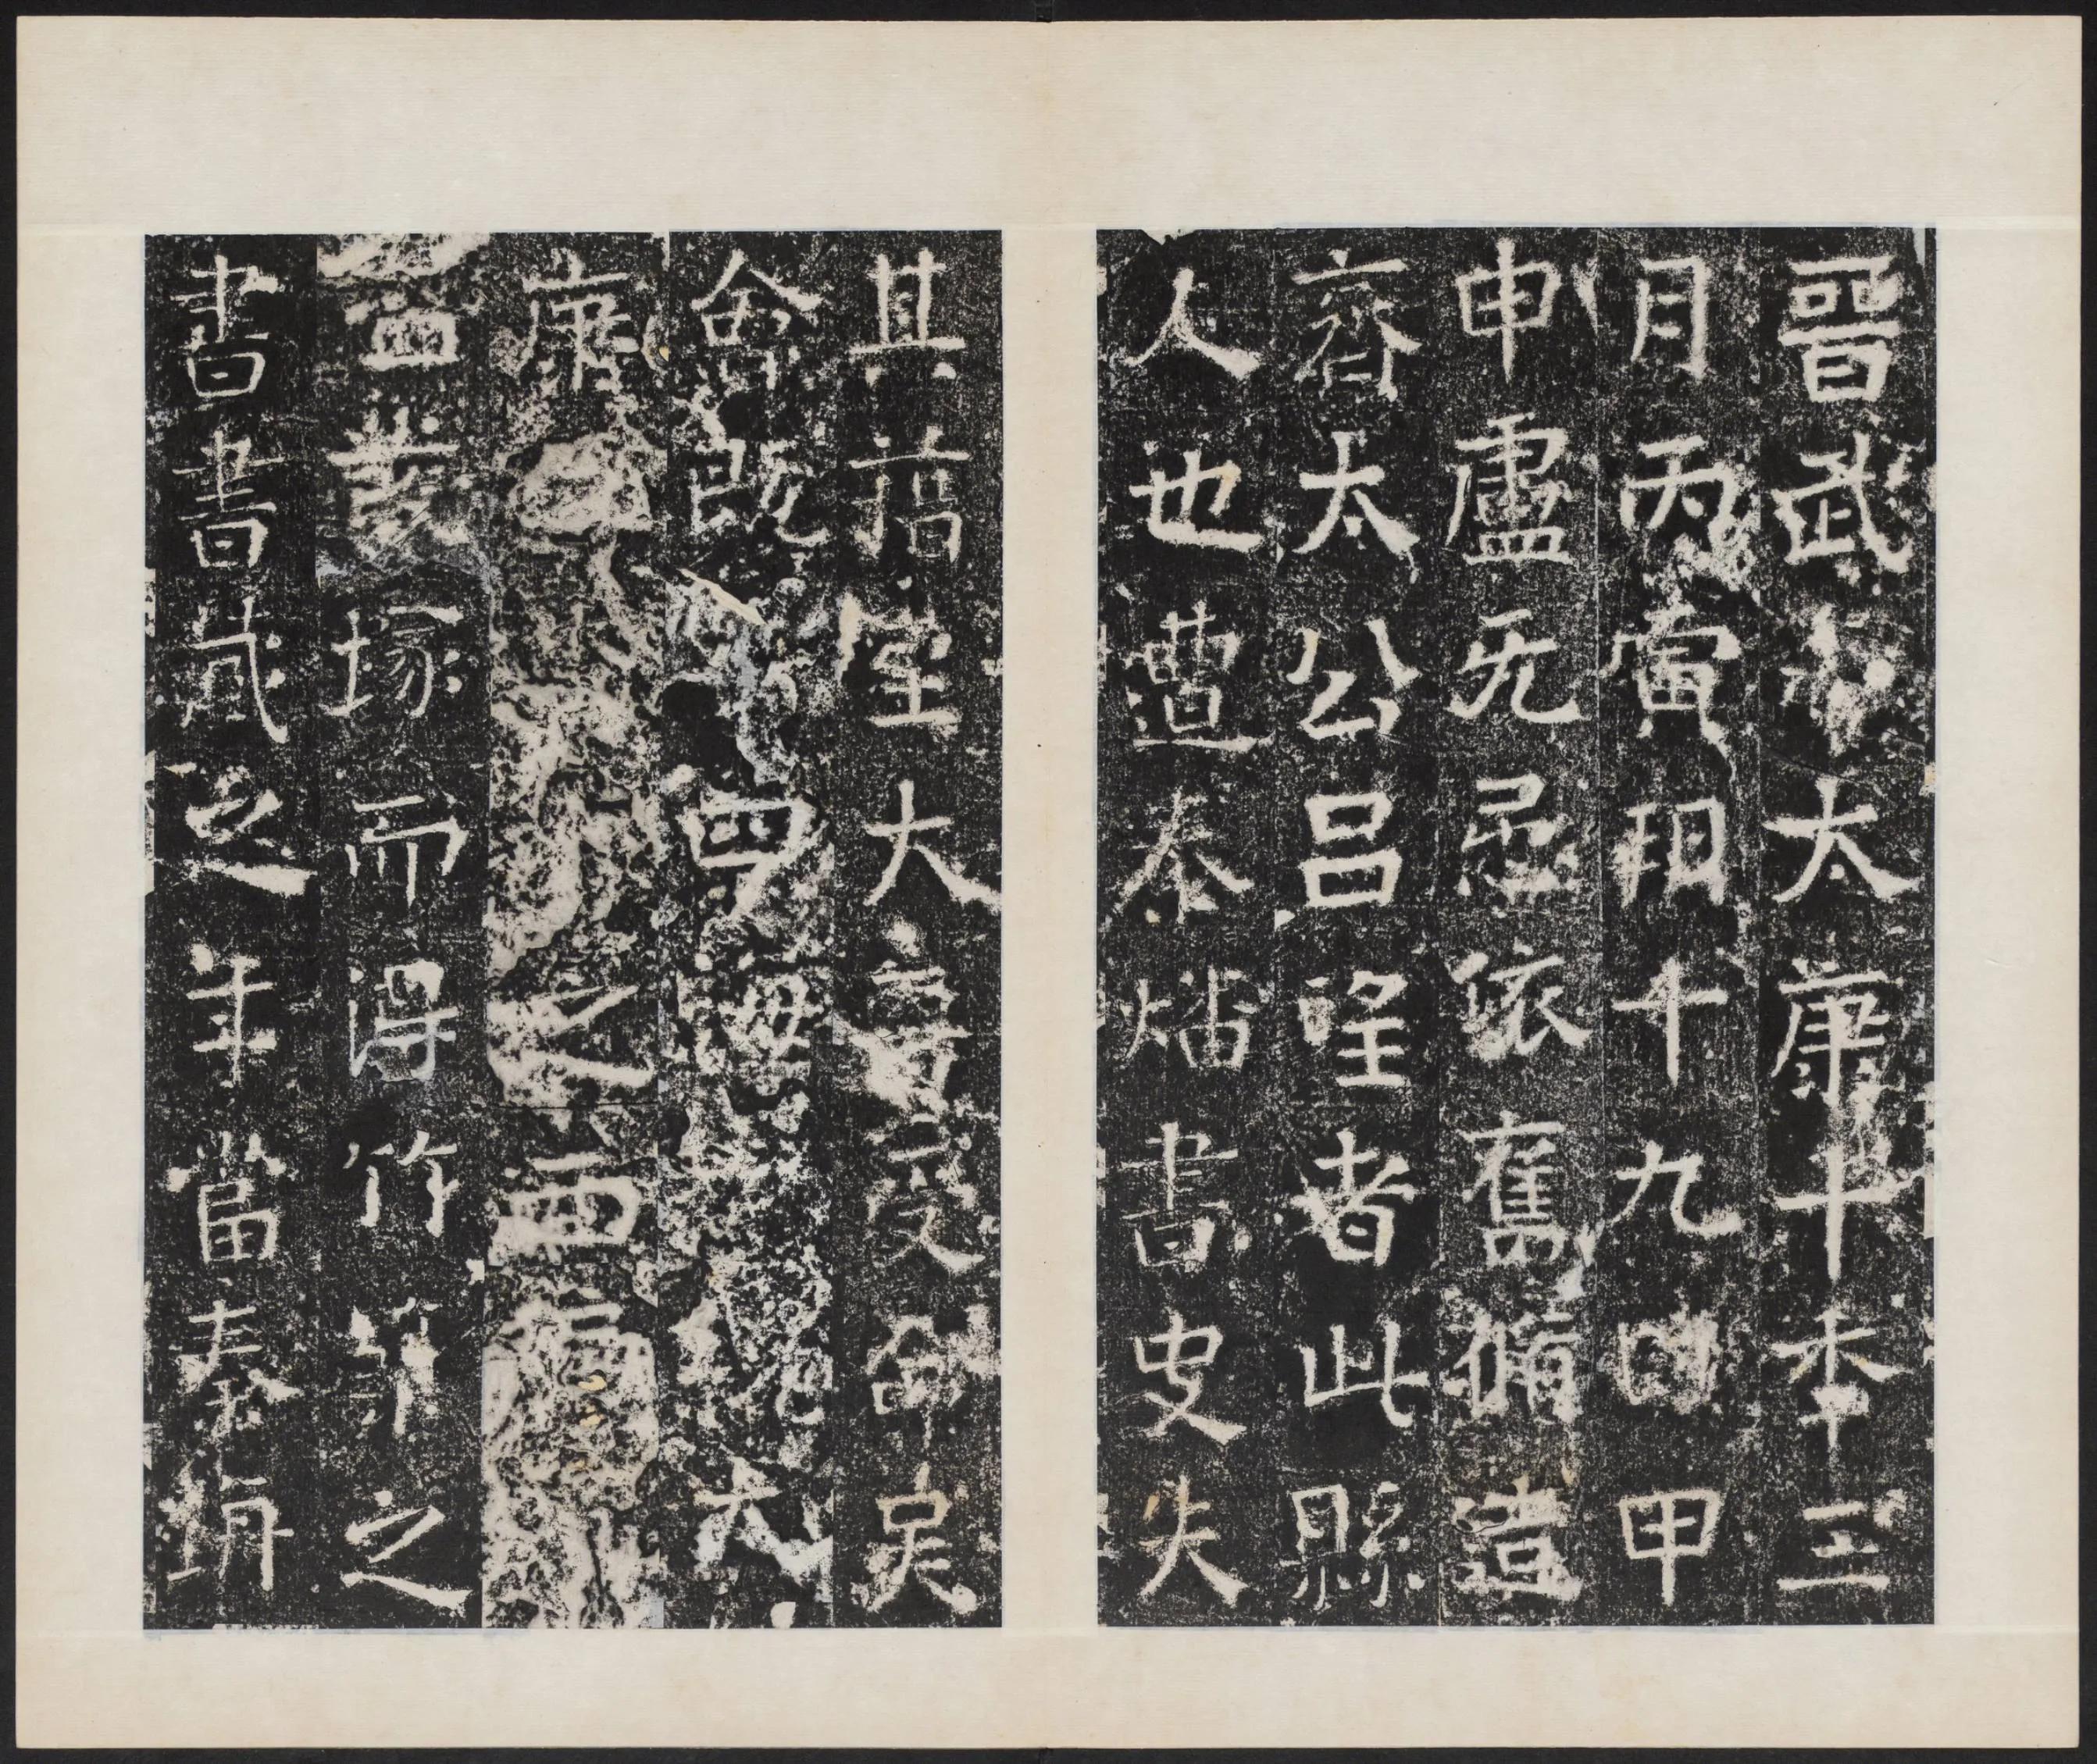 晉武太康十秊三
月丙寅朔十九日甲
申盧无忌依舊脩造
齊太公呂望者此縣
人也遭秦燔書史失
其籍望大晉受命吳
會既四海太
康之西偏
盜發塚而得竹策之
書書藏之年當秦坑